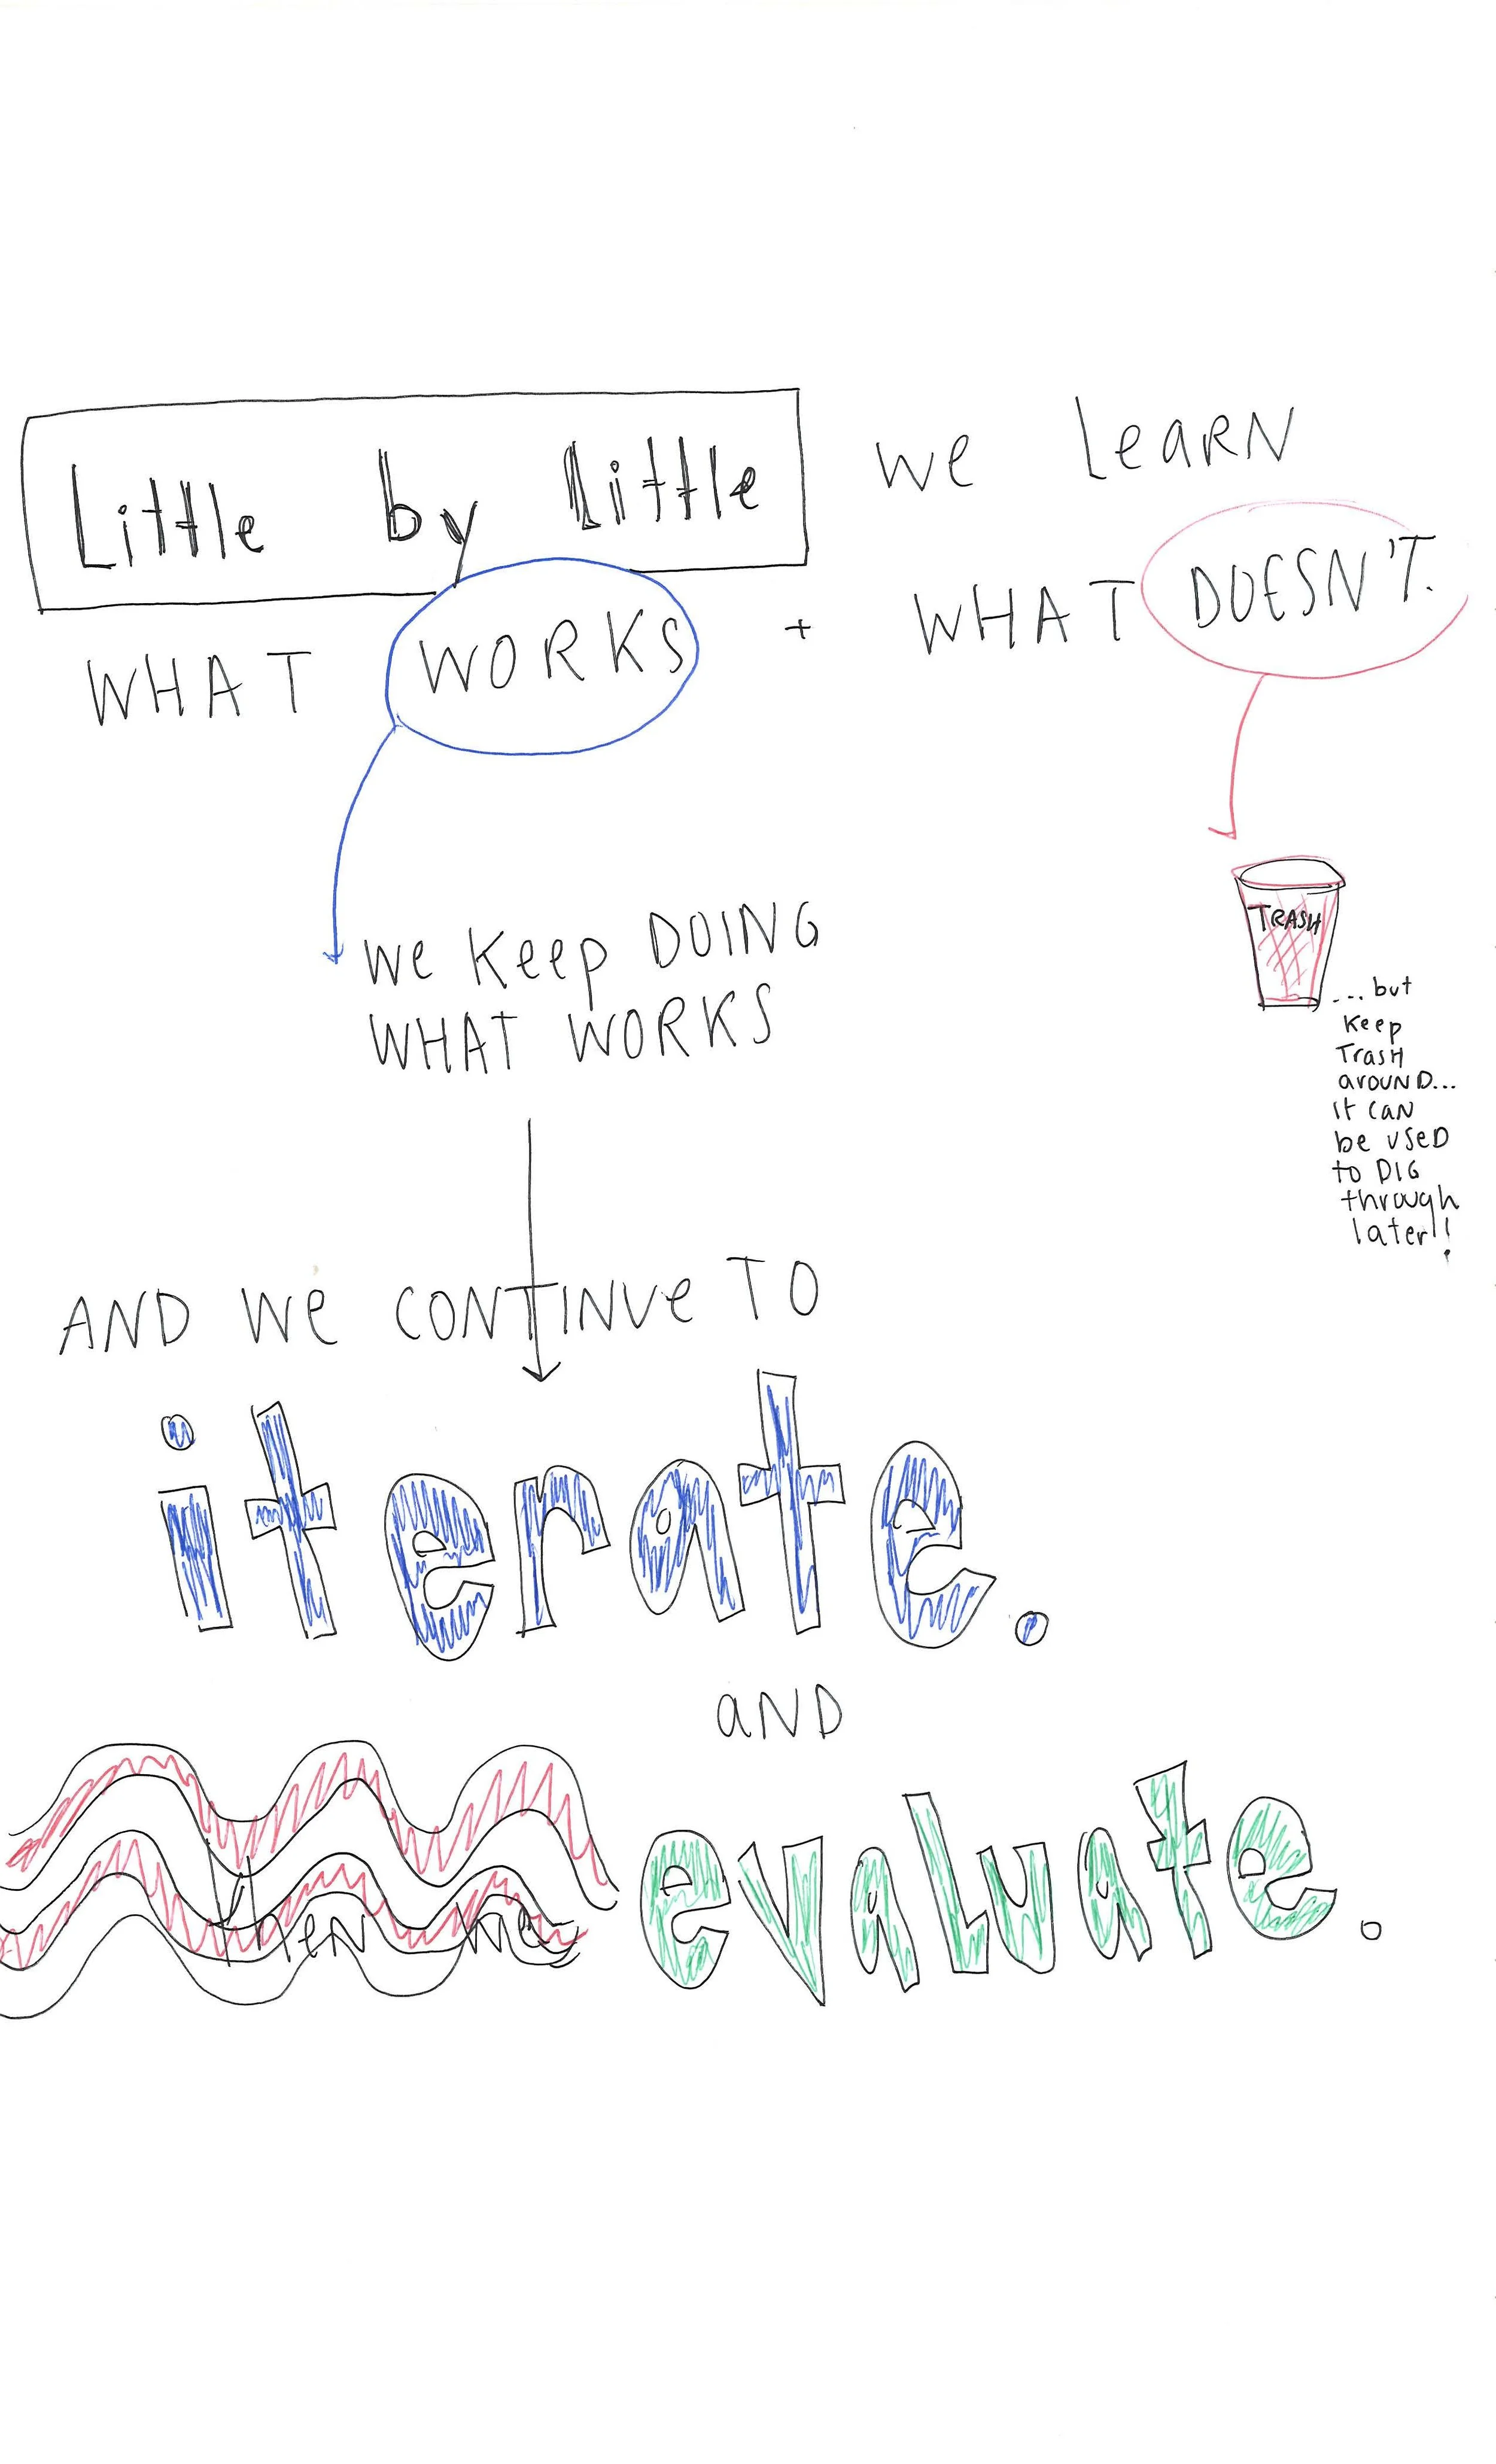 Little by Little we LeaRN
WHAT WORKS + WHAT DOESN'T.
TRASH
we Keep DOING
WHAT WORKS
...but
Keep
TrasH
arouND...
it caN
be useD
to DIG
through
later!!
AND We CONTINue TO
iterate.
aND
theN we
evaluate.